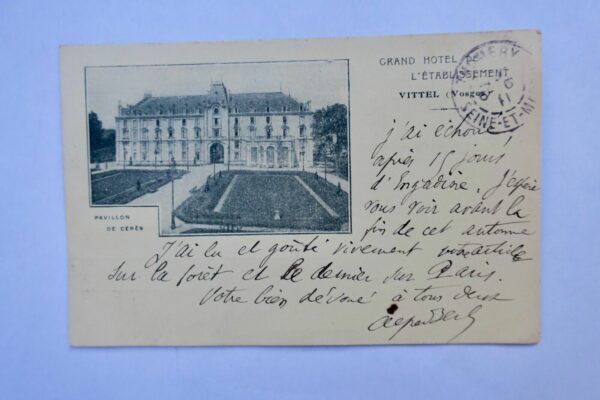 GRAND HOTEL DE
L'ÉTABLISSEMENT
VITTEL (Vosges)
SEINE-ET-M
PAVILLON
DE CÉRÈS
j'ai échoué
après 15 jours
d'Engadine. J'espère
vous voir avant la
fin de cet automne
J'ai lu et goûté vivement votre article
sur la forêt et le dernier sur Paris.
Votre bien dévoué à tous deux